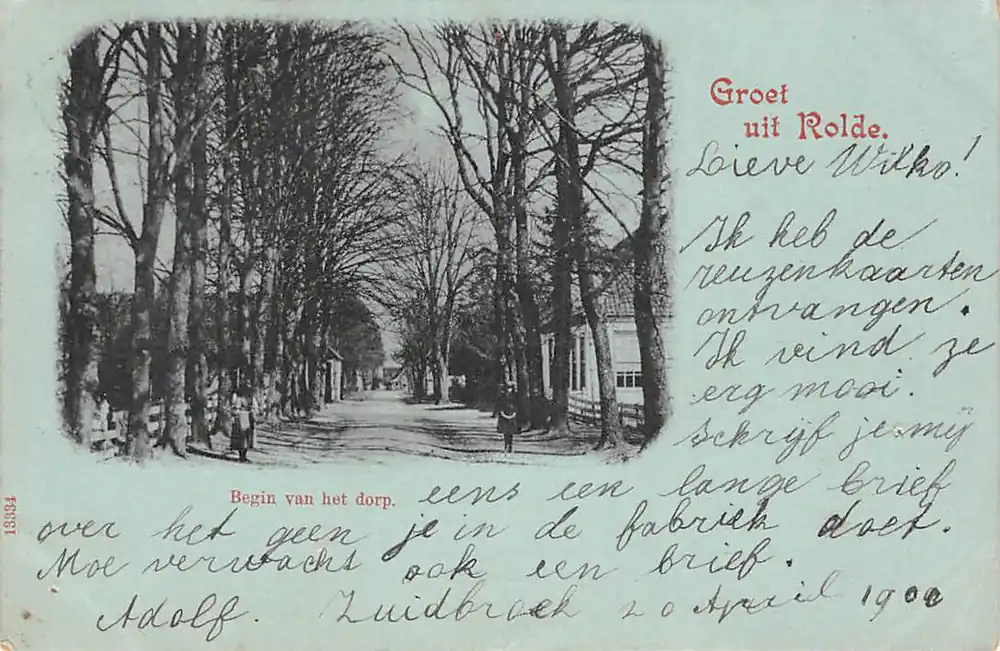 Groet
uit Rolde.
Lieve Witko!
Ik heb de
reuzenkaarten
ontvangen.
Ik vind ze
erg mooi.
Schrijf je mij
Begin van het dorp.
eens een lange brief
over het geen je in de fabriek doet.
Moe verwacht ook een brief.
Adolf. Zuidbroek 20 April 1900
13334